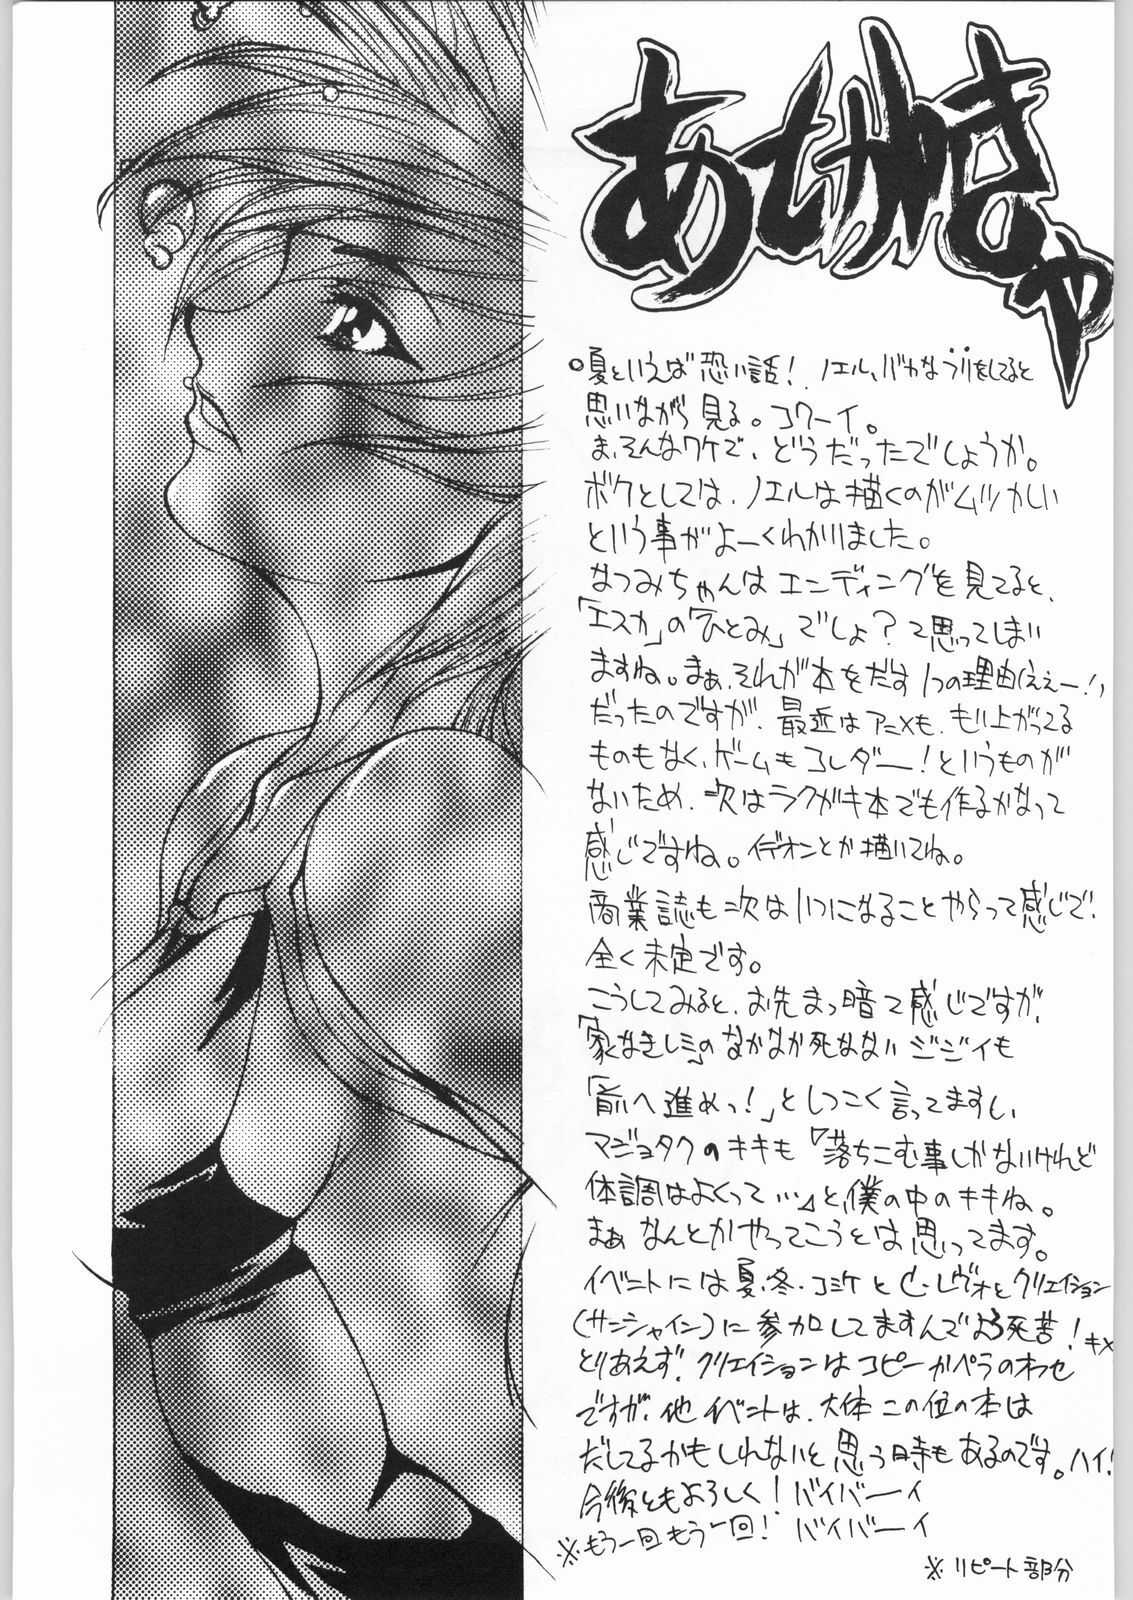 あとがきゃ
○夏といえば恐い話!ノエル、バカなフリをしてると
思いながら見る。コワーイ。
ま、そんなワケで、どうだったでしょうか。
ボクとしては、ノエルは描くのがムツかしい
という事がよーくわかりました。
なつみちゃんはエンディングを見てると、
「エスカ」の「ひとみ」でしょ?て思ってしまい
ますね。まぁ、それが本をだす1つの理由(ええー!)
だったのですが、最近はアニメも、もり上がってる
ものもなく、ゲームもコレダー!というものが
ないため、次はラクガキ本でも作るかなって
感じですね。イデオンとか描いてね。
商業誌も次はいつになることやらって感じで、
全く未定です。
こうしてみると、お先まっ暗て感じですが、
「家なきレミ」のなかなか死なないジジイも
「前へ進めっ!」としつこく言ってますし、
マジョタクのキキも「落ちこむ事しかないけれど
体調はよくって…」と僕の中のキキね。
まぁなんとかやってこうとは思ってます。
イベントには夏、冬、コミケとC・レヴォとクリエイション
(サンシャイン)に参加してますんでよろ死苦!キメ
とりあえず、クリエイションはコピーかペラのオフセ
ですが、他イベントは、大体この位の本は
だしてるかもしれないと思う時もあるのです。ハイ!
今後ともよろしく!バイバーイ
※もう一回もう一回!バイバーイ
※リピート部分